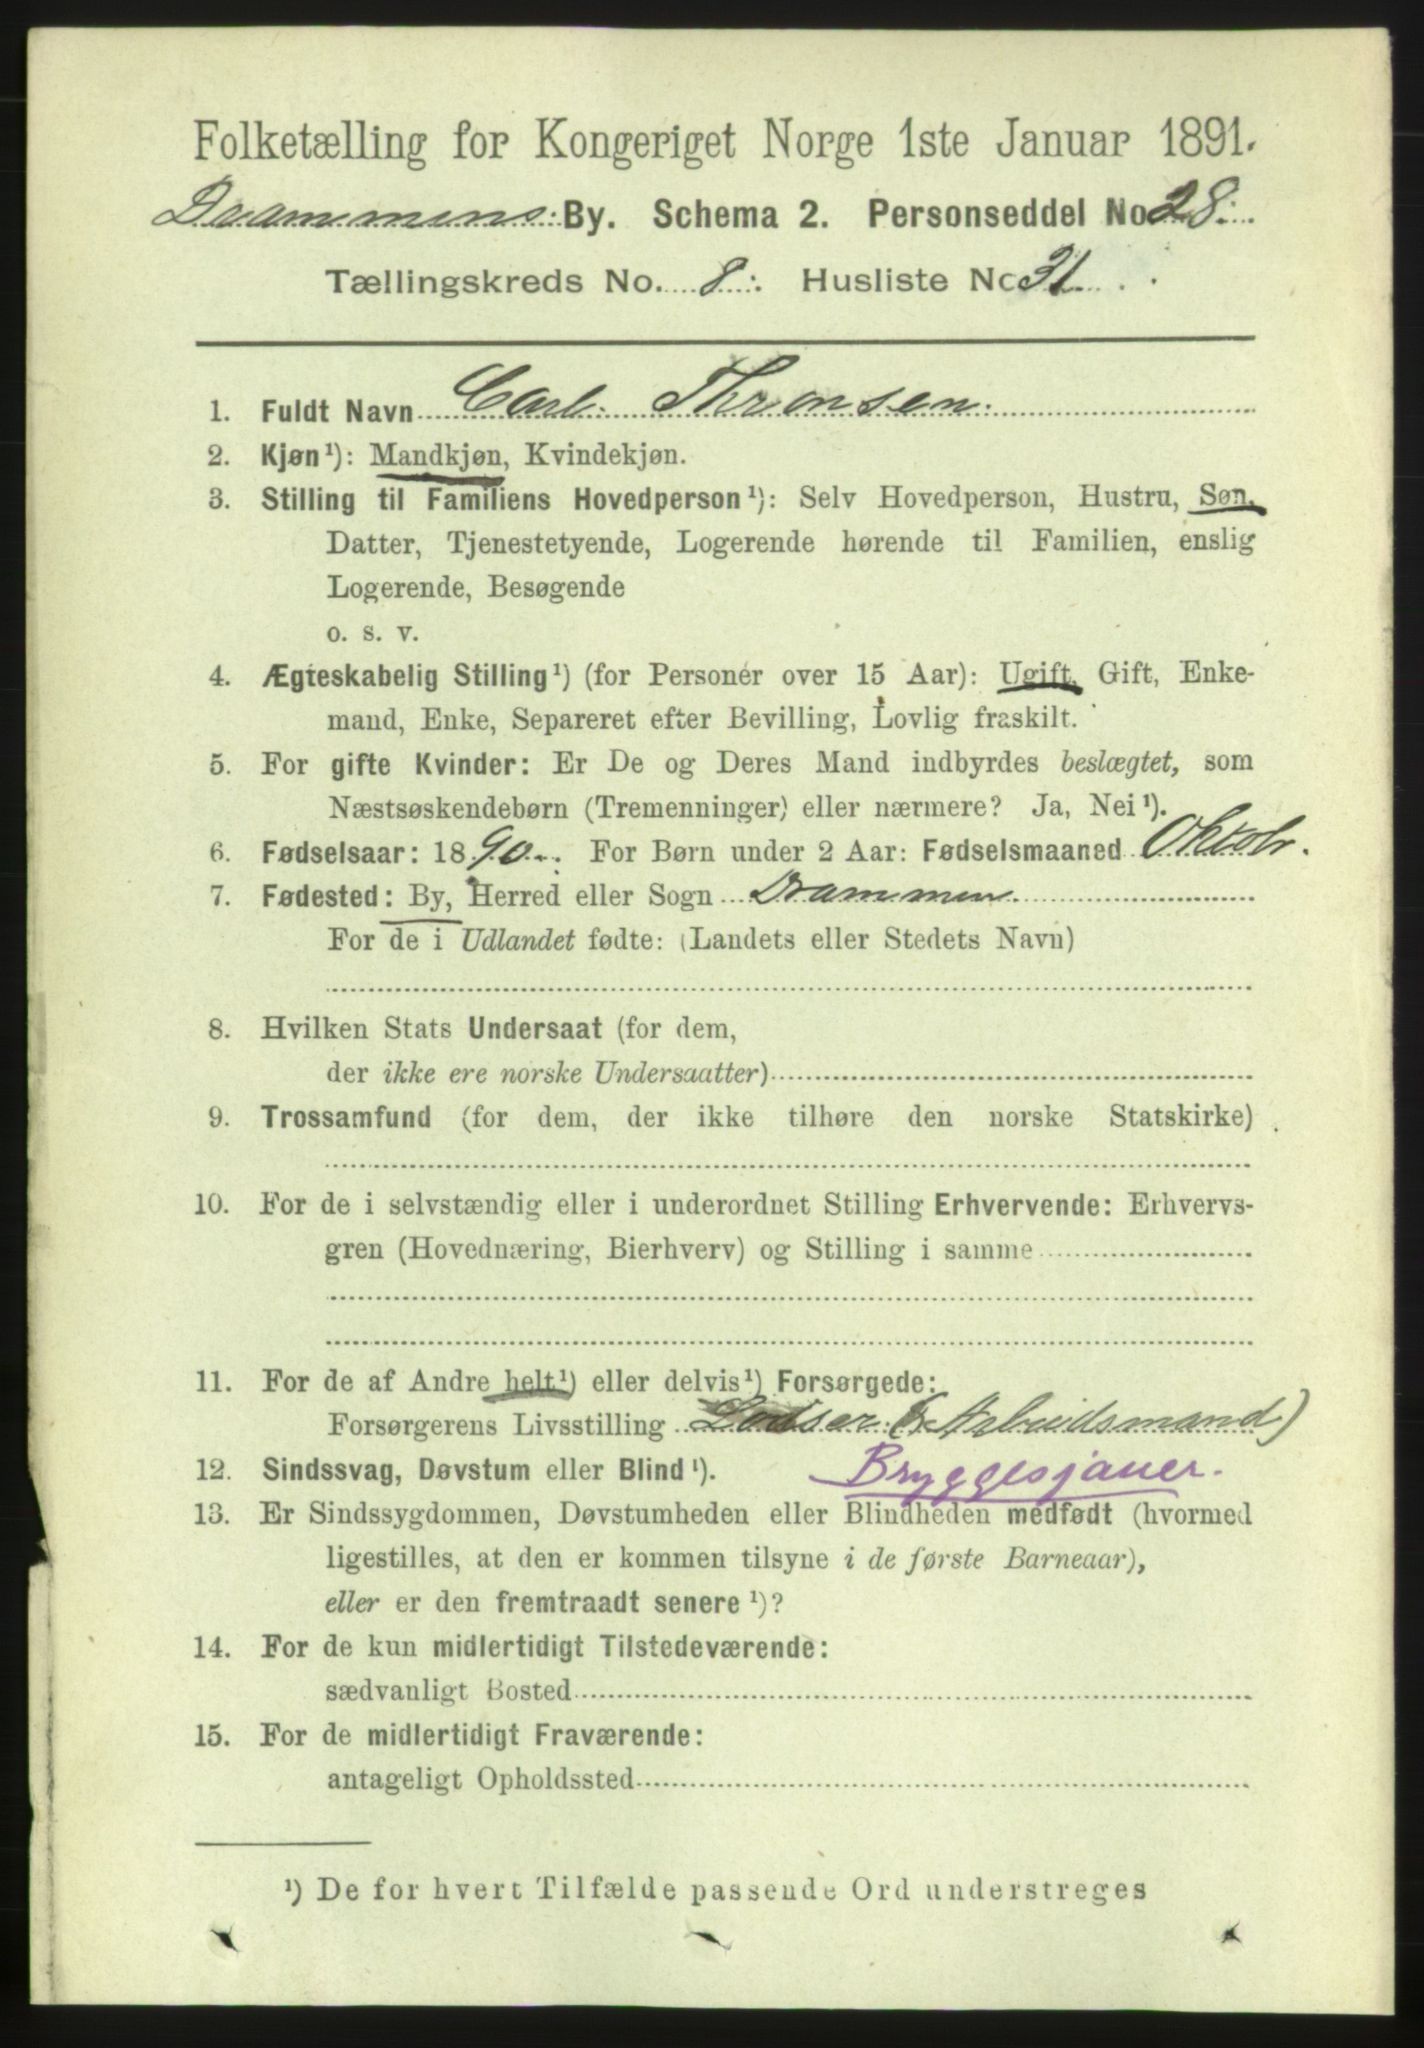 Folketælling for Kongeriget Norge 1ste Januar 1891.
Drammens By. Schema 2. Personseddel No 28.
Tællingskreds No. 8. Husliste No 31
1. Fuldt Navn Carl Thronsen.
2. Kjøn¹): Mandkjøn, Kvindekjøn.
3. Stilling til Familiens Hovedperson¹): Selv Hovedperson, Hustru, Søn,
Datter, Tjenestetyende, Logerende hørende til Familien, enslig
Logerende, Besøgende
o. s. v.
4. Ægteskabelig Stilling¹) (for Personer over 15 Aar): Ugift, Gift, Enke-
mand, Enke, Separeret efter Bevilling, Lovlig fraskilt.
5. For gifte Kvinder: Er De og Deres Mand indbyrdes beslægtet, som
Næstsøskendebørn (Tremenninger) eller nærmere? Ja, Nei¹).
6. Fødselsaar: 1890. For Børn under 2 Aar: Fødselsmaaned Oktobr.
7. Fødested: By, Herred eller Sogn Drammen.
For de i Udlandet fødte: (Landets eller Stedets Navn)
8. Hvilken Stats Undersaat (for dem,
der ikke ere norske Undersaatter)
9. Trossamfund (for dem, der ikke tilhøre den norske Statskirke)
10. For de i selvstændig eller i underordnet Stilling Erhvervende: Erhvervs-
gren (Hovednæring, Bierhverv) og Stilling i samme
11. For de af Andre helt¹) eller delvis¹) Forsørgede:
Forsørgerens Livsstilling (Arbeidsmand)
12. Sindssvag, Døvstum eller Blind¹). Bryggesjauer.
13. Er Sindssygdommen, Døvstumheden eller Blindheden medfødt (hvormed
ligestilles, at den er kommen tilsyne i de første Barneaar),
eller er den fremtraadt senere¹)?
14. For de kun midlertidigt Tilstedeværende:
sædvanligt Bosted
15. For de midlertidigt Fraværende:
antageligt Opholdssted
¹) De for hvert Tilfælde passende Ord understreges